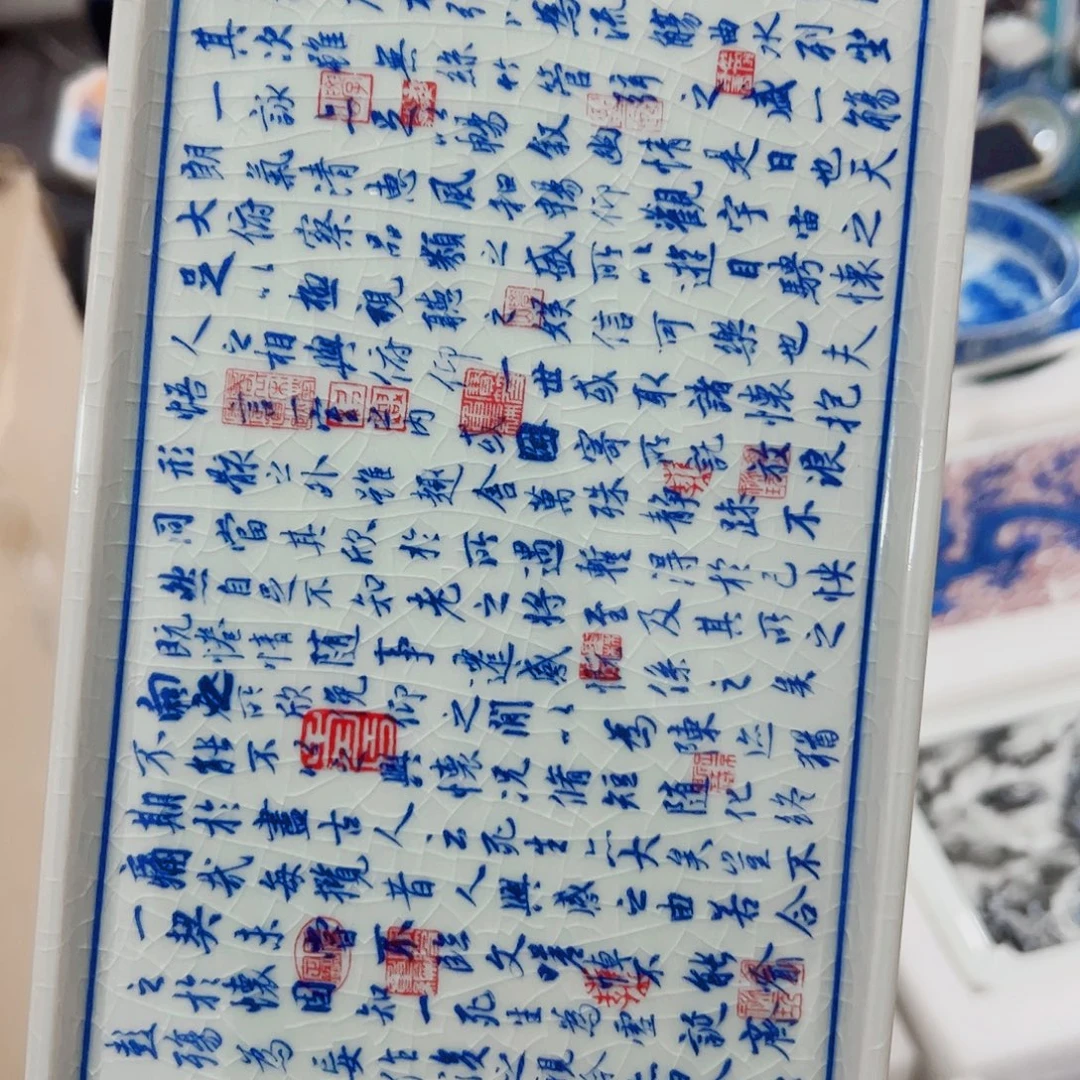 引以為流觴曲水列坐
其次雖無絲竹管弦之盛一觴
一詠亦足以暢敘幽情是日也天
朗氣清惠風和暢仰觀宇宙之
大俯察品類之盛所以遊目騁懷
足以極視聽之娛信可樂也夫
人之相與俯仰一世或取諸懷抱
悟言一室之內或因寄所託放浪
形骸之外雖趣舍萬殊靜躁不
同當其欣於所遇暫得於己怏
然自足不知老之將至及其所之
既惓情隨事遷感慨係之矣
向之所欣俛仰之閒以為陳迹猶
不能不以之興懷況脩短隨化終
期於盡古人云死生亦大矣豈不
痛哉每攬昔人興感之由若合
一契未嘗不臨文嗟悼不能喻
之於懷固知一死生為虛誕齊
彭殤為妄作後之視今